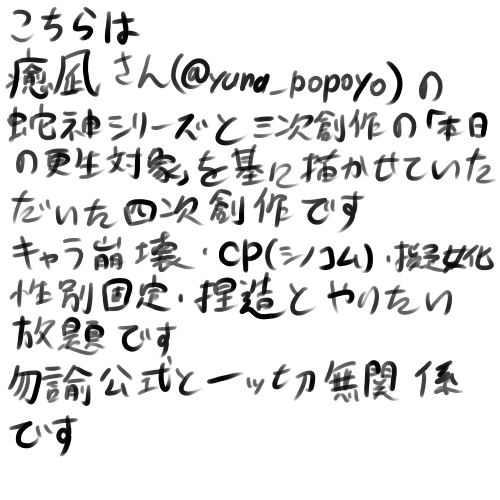 こちらは
癒凪さん(@yuna_popoyo)の
蛇神シリーズと三次創作の「本日
の更生対象」を基に描かせていた
だいた四次創作です
キャラ崩壊・CP(シノコム)・擬女化
性別固定・捏造とやりたい
放題です
勿論公式と一ッ切無関係
です